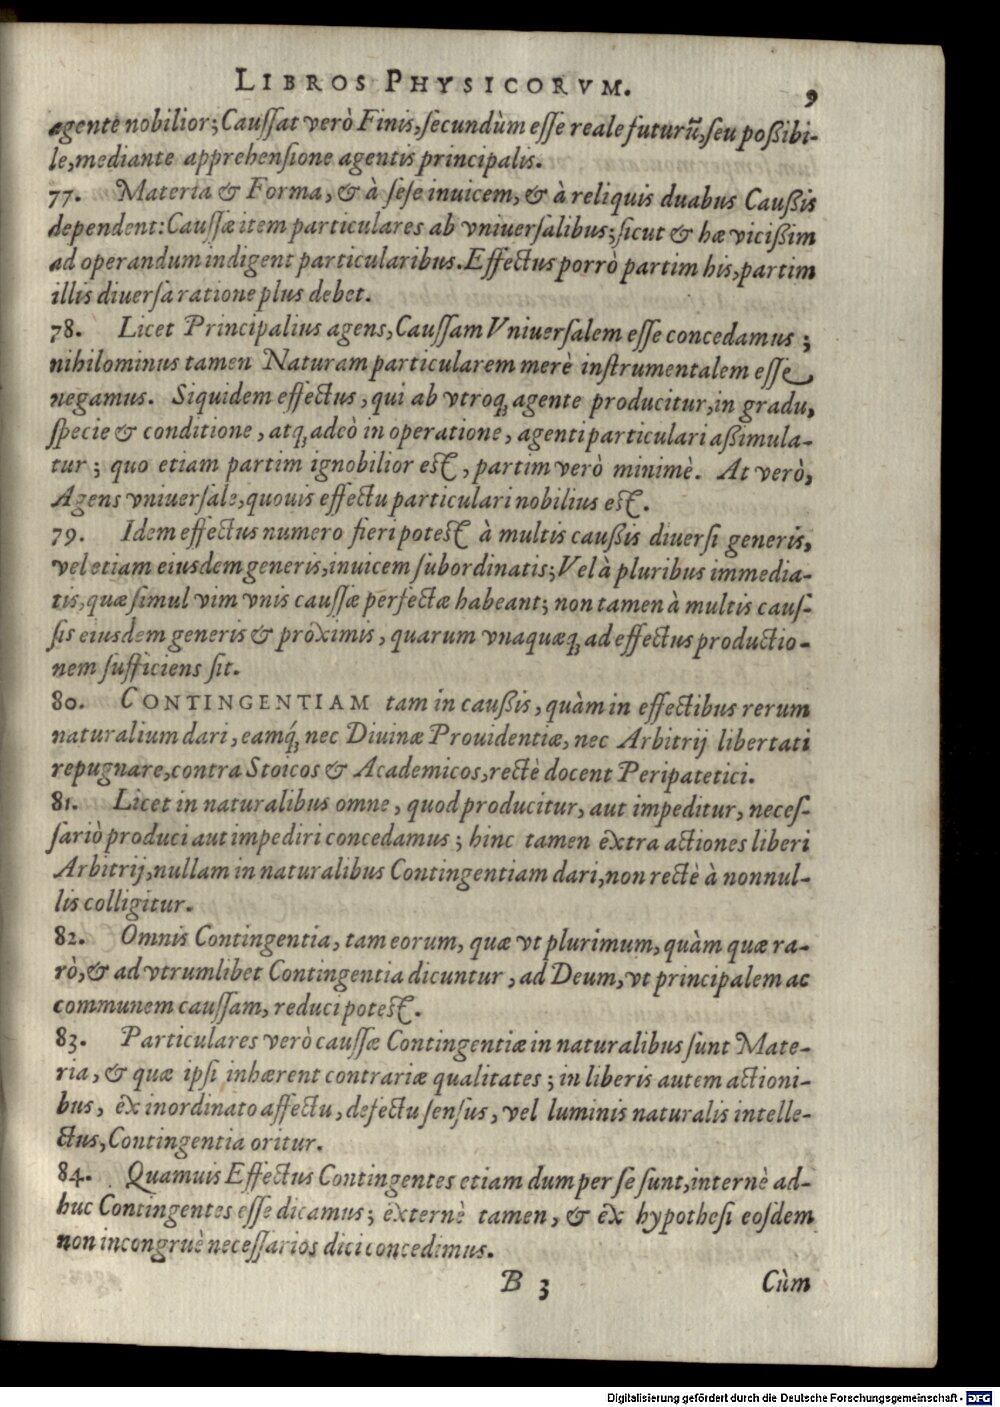 LIBROS PHYSICORVM. 9
agente nobilior; Cauſſat verò Finis, ſecundùm eſſe reale futurũ, ſeu poßibi-
le, mediante apprehenſione agentis principalis.
77. Materia & Forma, & à ſeſe inuicem, & à reliquis duabus Caußis
dependent: Cauſſæ item particulares ab vniuerſalibus; ſicut & hæ vicißim
ad operandum indigent particularibus. Effectus porrò partim his, partim
illis diuerſa ratione plus debet.
78. Licet Principalius agens, Cauſſam Vniuerſalem eſſe concedamus;
nihilominus tamen Naturam particularem merè inſtrumentalem eſſe
negamus. Siquidem effectus, qui ab vtroq́; agente producitur, in gradu,
ſpecie & conditione, atq́; adeò in operatione, agenti particulari aßimula-
tur; quo etiam partim ignobilior eſt, partim verò minimè. At verò,
Agens vniuerſale, quouis effectu particulari nobilius eſt.
79. Idem effectus numero fieri poteſt à multis caußis diuerſi generis,
vel etiam eiusdem generis, inuicem ſubordinatis; Vel à pluribus immedia-
tis, quæ ſimul vim vnis cauſſæ perfectæ habeant; non tamen à multis cauſ-
ſis eiusdem generis & proximis, quarum vnaquæq́; ad effectus productio-
nem ſufficiens ſit.
80. CONTINGENTIAM tam in caußis, quàm in effectibus rerum
naturalium dari, eamq́; nec Diuinæ Prouidentiæ, nec Arbitrij libertati
repugnare, contra Stoicos & Academicos, rectè docent Peripatetici.
81. Licet in naturalibus omne, quod producitur, aut impeditur, neceſ-
ſariò produci aut impediri concedamus; hinc tamen extra actiones liberi
Arbitrij, nullam in naturalibus Contingentiam dari, non rectè à nonnul-
lis colligitur.
82. Omnis Contingentia, tam eorum, quæ vt plurimum, quàm quæ ra-
rò, & ad vtrumlibet Contingentia dicuntur, ad Deum, vt principalem ac
communem cauſſam, reduci poteſt.
83. Particulares verò cauſſæ Contingentiæ in naturalibus ſunt Mate-
ria, & quæ ipſi inhærent contrariæ qualitates; in liberis autem actioni-
bus, ex inordinato affectu, defectu ſenſus, vel luminis naturalis intelle-
ctus, Contingentia oritur.
84. Quamuis Effectus Contingentes etiam dum per ſe ſunt, internè ad-
huc Contingentes eſſe dicamus; externè tamen, & ex hypotheſi eoſdem
non incongruè neceſſarios dici concedimus.
B 3 Cùm
Digitalisierung gefördert durch die Deutsche Forschungsgemeinschaft - DFG